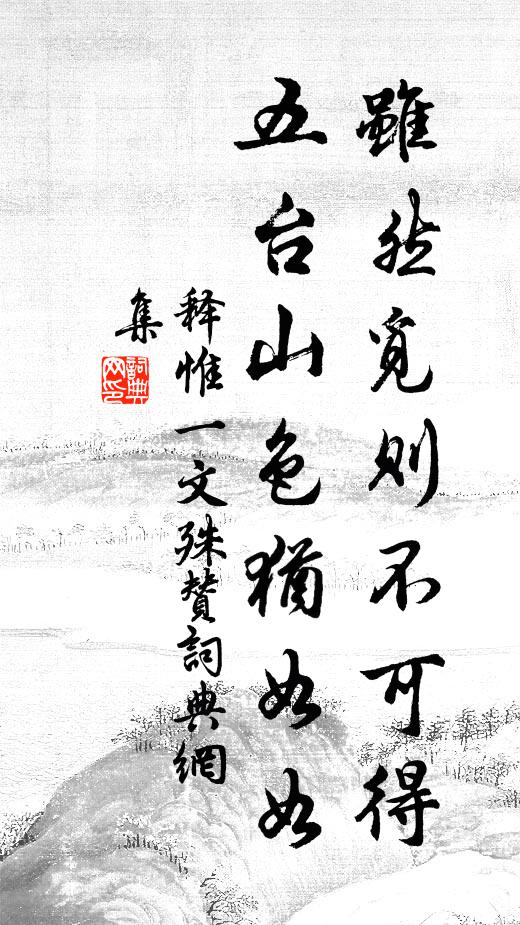 雖然覓則不可得
五台山色猶如如
释惟一文殊赞詞典網
集
詞典网印